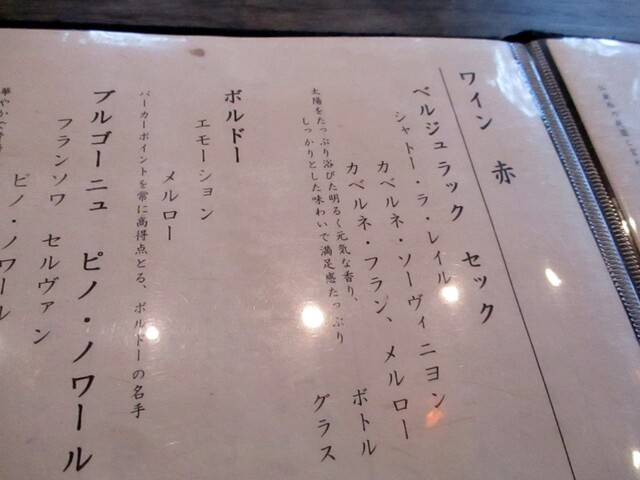 ワイン 赤
ベルジュラック セック
シャトー・ラ・レイル
カベルネ・ソーヴィニヨン
カベルネ・フラン、メルロー
太陽をたっぷり浴びた明るく元気な香り、
しっかりとした味わいで満足感たっぷり
ボトル
グラス
ボルドー
エモーション
メルロー
パーカーポイントを常に高得点とる、ボルドーの名手
ブルゴーニュ ピノ・ノワール
フランソワ セルヴァン
ピノ・ノワール
華やかで